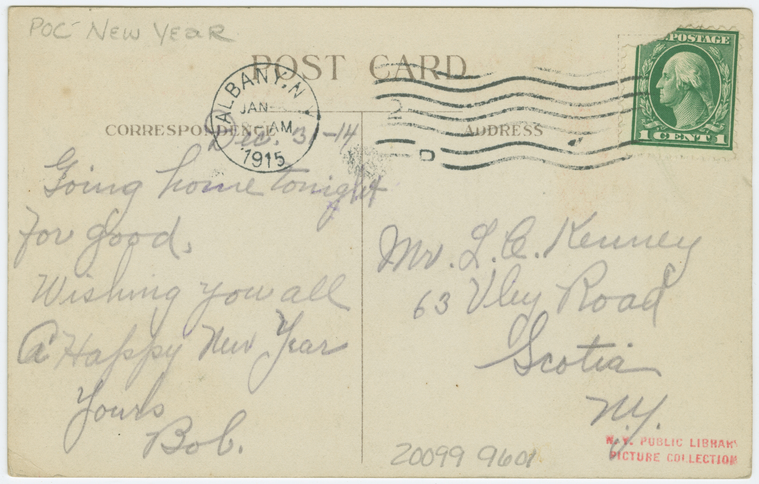 POC - New Year
POST CARD
ALBANY, N.Y.
JAN
AM
1915
POSTAGE
1 CENT 1
CORRESPONDENCE
ADDRESS
Dec. 31-14
Going home tonight
for good.
Wishing you all
A Happy New Year
Yours
Bob.
Mr. L. C. Kenney
63 Vley Road
Scotia
N.Y.
20099 9601
N.Y. PUBLIC LIBRARY
PICTURE COLLECTION